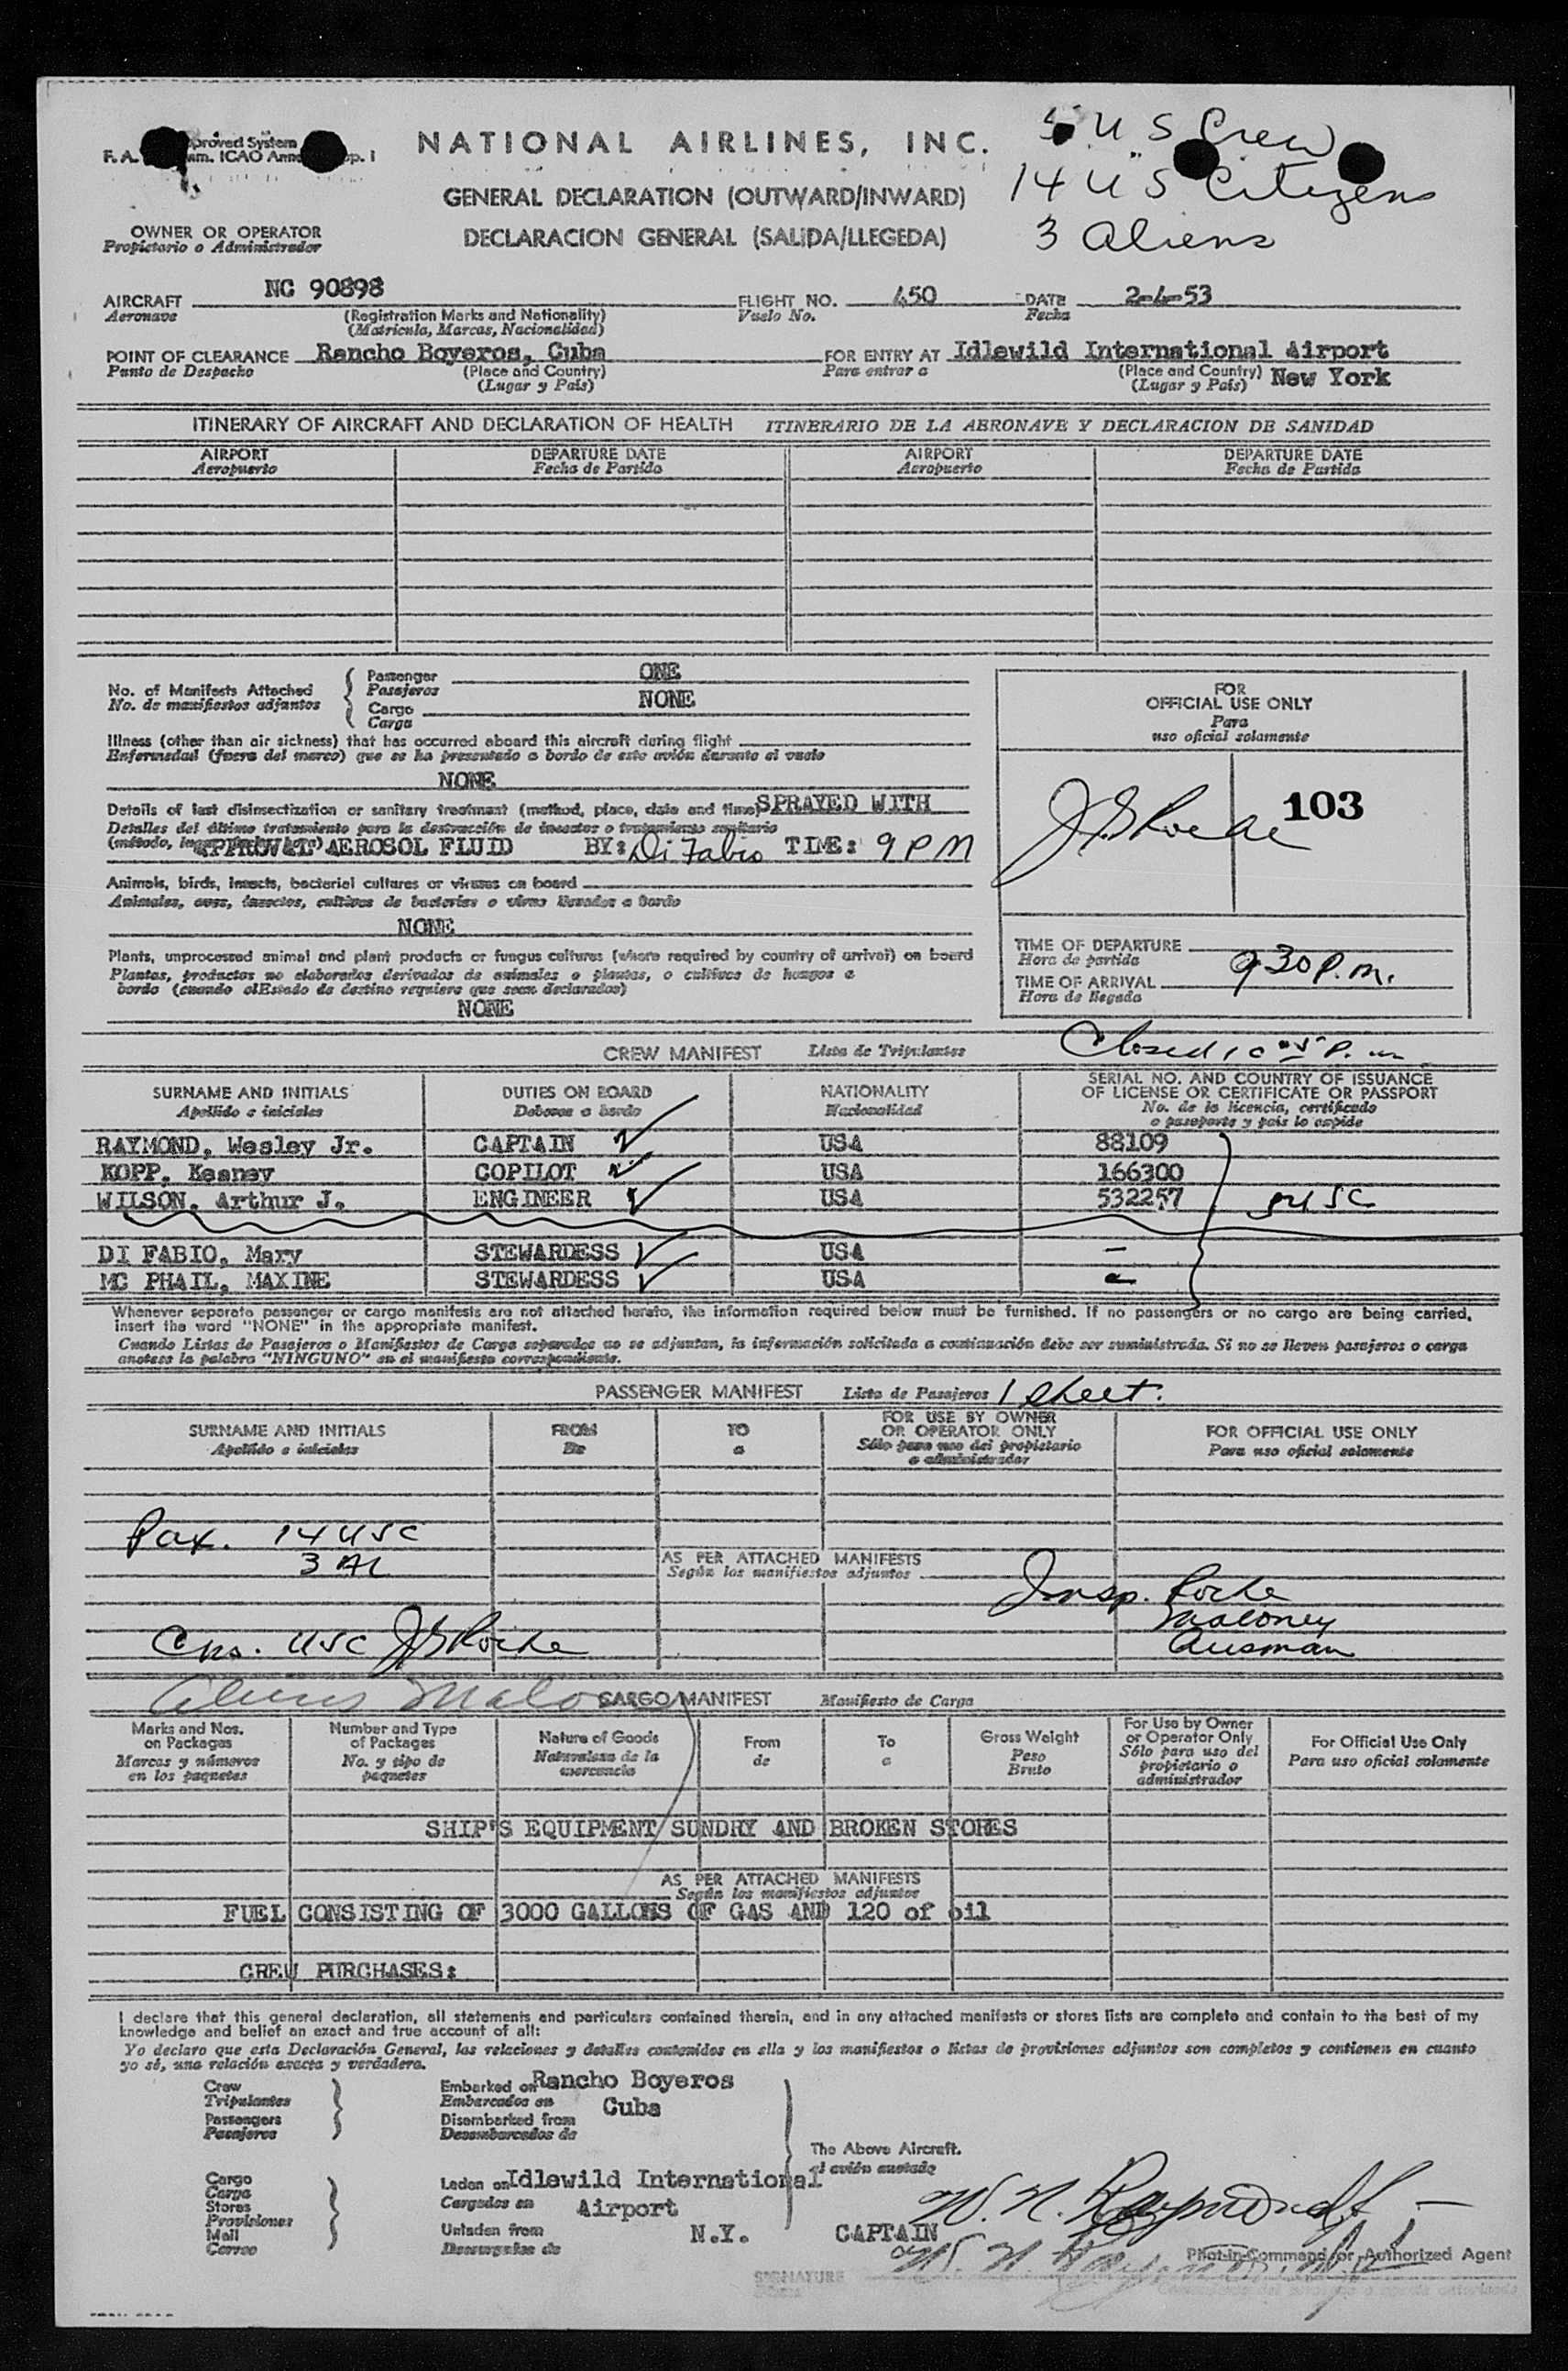 NATIONAL AIRLINES, INC.
5 U S Crew
proved System
F. A. am. ICAO Ann pp. I
14 U S Citizens
GENERAL DECLARATION (OUTWARD/INWARD)
3 Aliens
OWNER OR OPERATOR
Propietario o Administrador
DECLARACION GENERAL (SALIDA/LLEGEDA)
AIRCRAFT NC 90898 FLIGHT NO. 450 DATE 2-4-53
Aeronave (Registration Marks and Nationality) Vuelo No. Fecha
(Matricula, Marcas, Nacionalidad)
POINT OF CLEARANCE Rancho Boyeros, Cuba FOR ENTRY AT Idlewild International Airport
Punto de Despacho (Place and Country) Para entrar a (Place and Country) New York
(Lugar y País) (Lugar y País)
ITINERARY OF AIRCRAFT AND DECLARATION OF HEALTH ITINERARIO DE LA AERONAVE Y DECLARACION DE SANIDAD
AIRPORT DEPARTURE DATE AIRPORT DEPARTURE DATE
Aeropuerto Fecha de Partida Aeropuerto Fecha de Partida
No. of Manifests Attached Passenger ONE
No. de manifiestos adjuntos Pasajeros
Cargo NONE
Carga
FOR
OFFICIAL USE ONLY
Para
uso oficial solamente
Illness (other than air sickness) that has occurred aboard this aircraft during flight
Enfermedad (fuera del mareo) que se ha presentado a bordo de este avión durante el vuelo
NONE
Details of last disinsectization or sanitary treatment (method, place, date and time) SPRAYED WITH
Detalles del último tratamiento para la destrucción de insectos o tratamiento sanitario
APPROVAL AEROSOL FLUID BY: Di Fabio TIME: 9 PM
J.G Roche 103
Animals, birds, insects, bacterial cultures or viruses on board
Animales, aves, insectos, cultivos de bacterias o virus llevados a bordo
NONE
Plants, unprocessed animal and plant products or fungus cultures (where required by country of arrival) on board
Plantas, productos no elaborados derivados de animales o plantas, o cultivos de hongos a
bordo (cuando elEstado de destino requiera que sean declarados)
NONE
TIME OF DEPARTURE
Hora de partida
TIME OF ARRIVAL 930 P.m.
Hora de llegada
CREW MANIFEST Lista de Tripulantes Closed 10 05 P.m
SURNAME AND INITIALS DUTIES ON BOARD NATIONALITY SERIAL NO. AND COUNTRY OF ISSUANCE
Apellido e iniciales Deberes a bordo Nacionalidad OF LICENSE OR CERTIFICATE OR PASSPORT
No. de la licencia, certificado
o pasaporte y país lo expide
RAYMOND, Wesley Jr. CAPTAIN USA 88109
KOPP, Keaney COPILOT USA 166300
WILSON, Arthur J. ENGINEER USA 532257 5USC
DI FABIO, Mary STEWARDESS USA -
MC PHAIL, MAXINE STEWARDESS USA -
Whenever separate passenger or cargo manifests are not attached hereto, the information required below must be furnished. If no passengers or no cargo are being carried,
insert the word "NONE" in the appropriate manifest.
Cuando Listas de Pasajeros o Manifiestos de Carga separados no se adjuntan, la información solicitada a continuación debe ser suministrada. Si no se lleven pasajeros o carga
anotese la palabra "NINGUNO" en el manifiesto correspondiente.
PASSENGER MANIFEST Lista de Pasajeros 1 sheet.
SURNAME AND INITIALS FROM TO FOR USE BY OWNER FOR OFFICIAL USE ONLY
Apellido e iniciales De a OR OPERATOR ONLY Para uso oficial solamente
Sólo para uso del propietario
o administrador
Pax. 14 USC
3 AL
AS PER ATTACHED MANIFESTS
Según los manifiestos adjuntos
Insp. Roche
Maloney
Ausman
Cns. USC JG Roche
Aliens Malo
CARGO MANIFEST Manifiesto de Carga
Marks and Nos. Number and Type Nature of Goods From To Gross Weight For Use by Owner For Official Use Only
on Packages of Packages Naturaleza de la de a Peso or Operator Only Para uso oficial solamente
Marcas y números No. y tipo de mercancía Bruto Sólo para uso del
en los paquetes paquetes propietario o
administrador
SHIP'S EQUIPMENT SUNDRY AND BROKEN STORES
AS PER ATTACHED MANIFESTS
Según los manifiestos adjuntos
FUEL CONSISTING OF 3000 GALLONS OF GAS AND 120 of oil
CREW PURCHASES:
I declare that this general declaration, all statements and particulars contained therein, and in any attached manifests or stores lists are complete and contain to the best of my
knowledge and belief an exact and true account of all:
Yo declaro que esta Declaración General, las relaciones y detalles contenidos en ella y los manifiestos o listas de provisiones adjuntos son completos y contienen en cuanto
yo sé, una relación exacta y verdadera.
Crew Embarked on Rancho Boyeros
Tripulantes Embarcados en Cuba
Passengers Disembarked from
Pasajeros Desembarcados de
The Above Aircraft.
el avión anotado
Cargo Laden on Idlewild International
Carga
Stores Cargados en Airport
Provisiones
Mail Unladen from N.Y.
Correo Descargados de
W. N. Raymond Jr
CAPTAIN
W. N. Raymond Jr
Pilot-in-Command or Authorized Agent
SIGNATURE